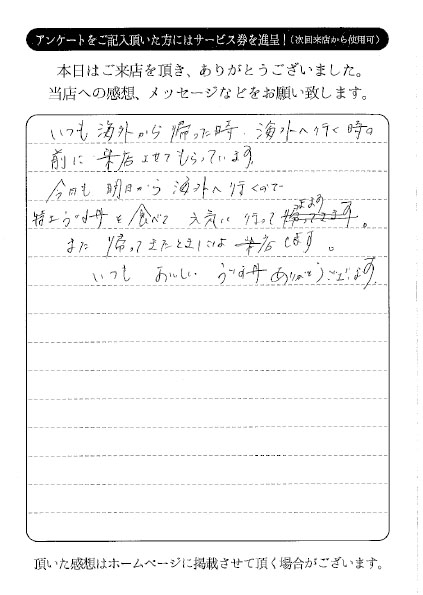 アンケートをご記入頂いた方にはサービス券を進呈！（次回来店から使用可）
本日はご来店を頂き、ありがとうございました。
当店への感想、メッセージなどをお願い致します。
いつも 海外から 帰った時、海外へ行く時の
前に 来店させてもらっています。
今回も 明日から 海外へ 行くので
特上うな丼を食べて 元気に 行って きます。
また 帰ってきたときには 来店 します。
いつも おいしい うな丼 ありがとうございます。
頂いた感想はホームページに掲載させて頂く場合がございます。